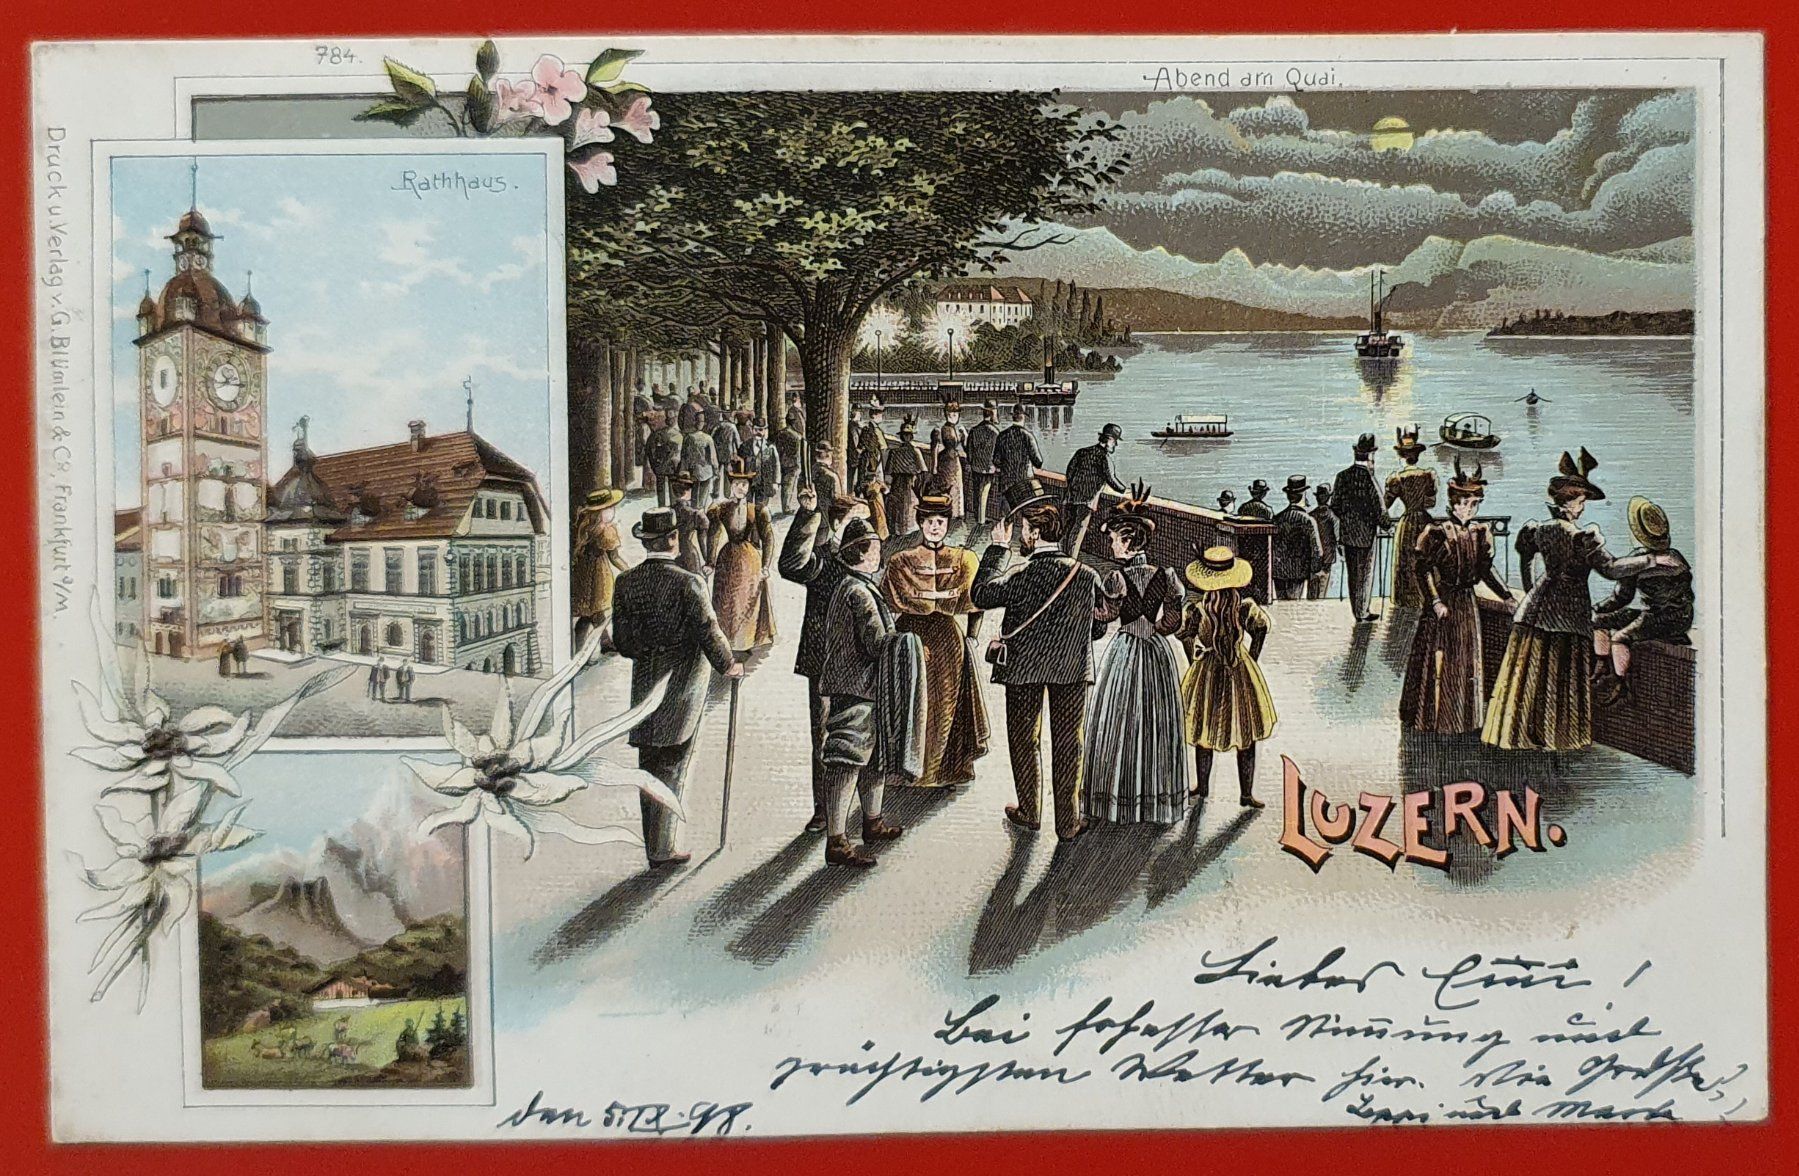 784.
Abend am Quai.
Rathhaus.
Druck u. Verlag v. G. Blümlein & Co, Frankfurt a/M.
LUZERN.
Lieber !
Bei Stimmung und
prächtigsten Wetter hier. Die
und
den 5.IX.98.